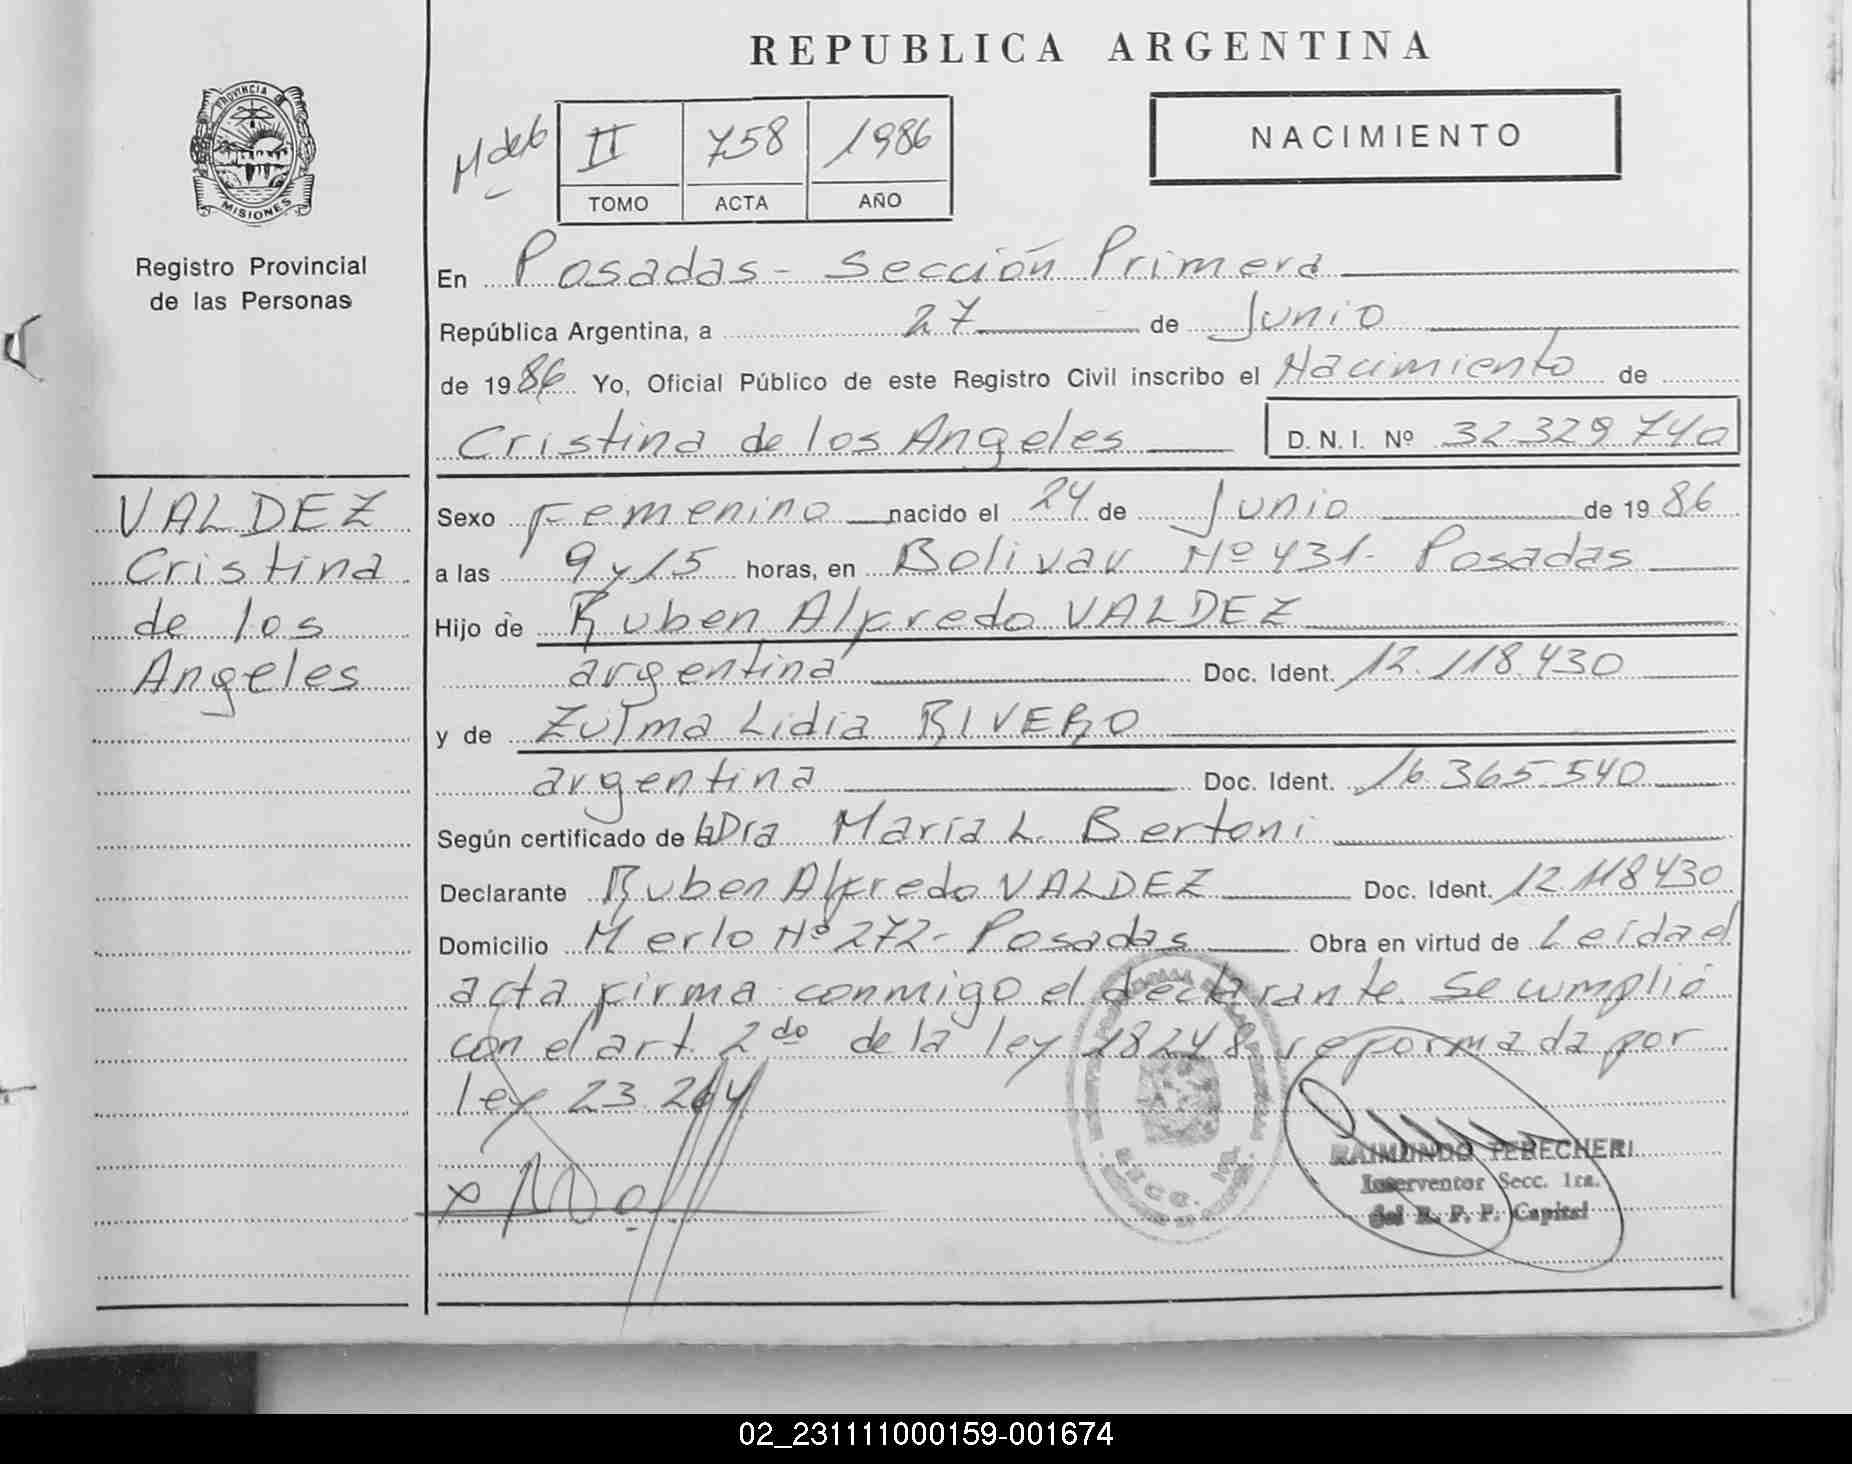 REPUBLICA ARGENTINA
PROVINCIA
MISIONES
Registro Provincial
de las Personas
II 758 1986
TOMO ACTA AÑO
NACIMIENTO
En Posadas - Sección Primera
República Argentina, a 27 de Junio
de 1986 Yo, Oficial Público de este Registro Civil inscribo el Nacimiento de
Cristina de los Angeles D. N. I. Nº 32.329.740
VALDEZ
Cristina
de los
Angeles
Sexo Femenino nacido el 24 de Junio de 1986
a las 9 y 15 horas, en Bolivar Nº 431- Posadas
Hijo de Ruben Alfredo VALDEZ
argentina Doc. Ident. 12.118.430
y de Zulma Lidia RIVERO
argentina Doc. Ident. 16.365.540
Según certificado de la Dra Maria L. Bertoni
Declarante Ruben Alfredo VALDEZ Doc. Ident. 12.118430
Domicilio Merlo Nº 272- Posadas Obra en virtud de Leída el
acta firma conmigo el declarante. Se cumplió
con el art. 2do de la ley 18248 reformada por
ley 23.264
RAIMUNDO TERECHERI
Interventor Secc. 1ra.
del R. P. P. Capital
02_231111000159-001674